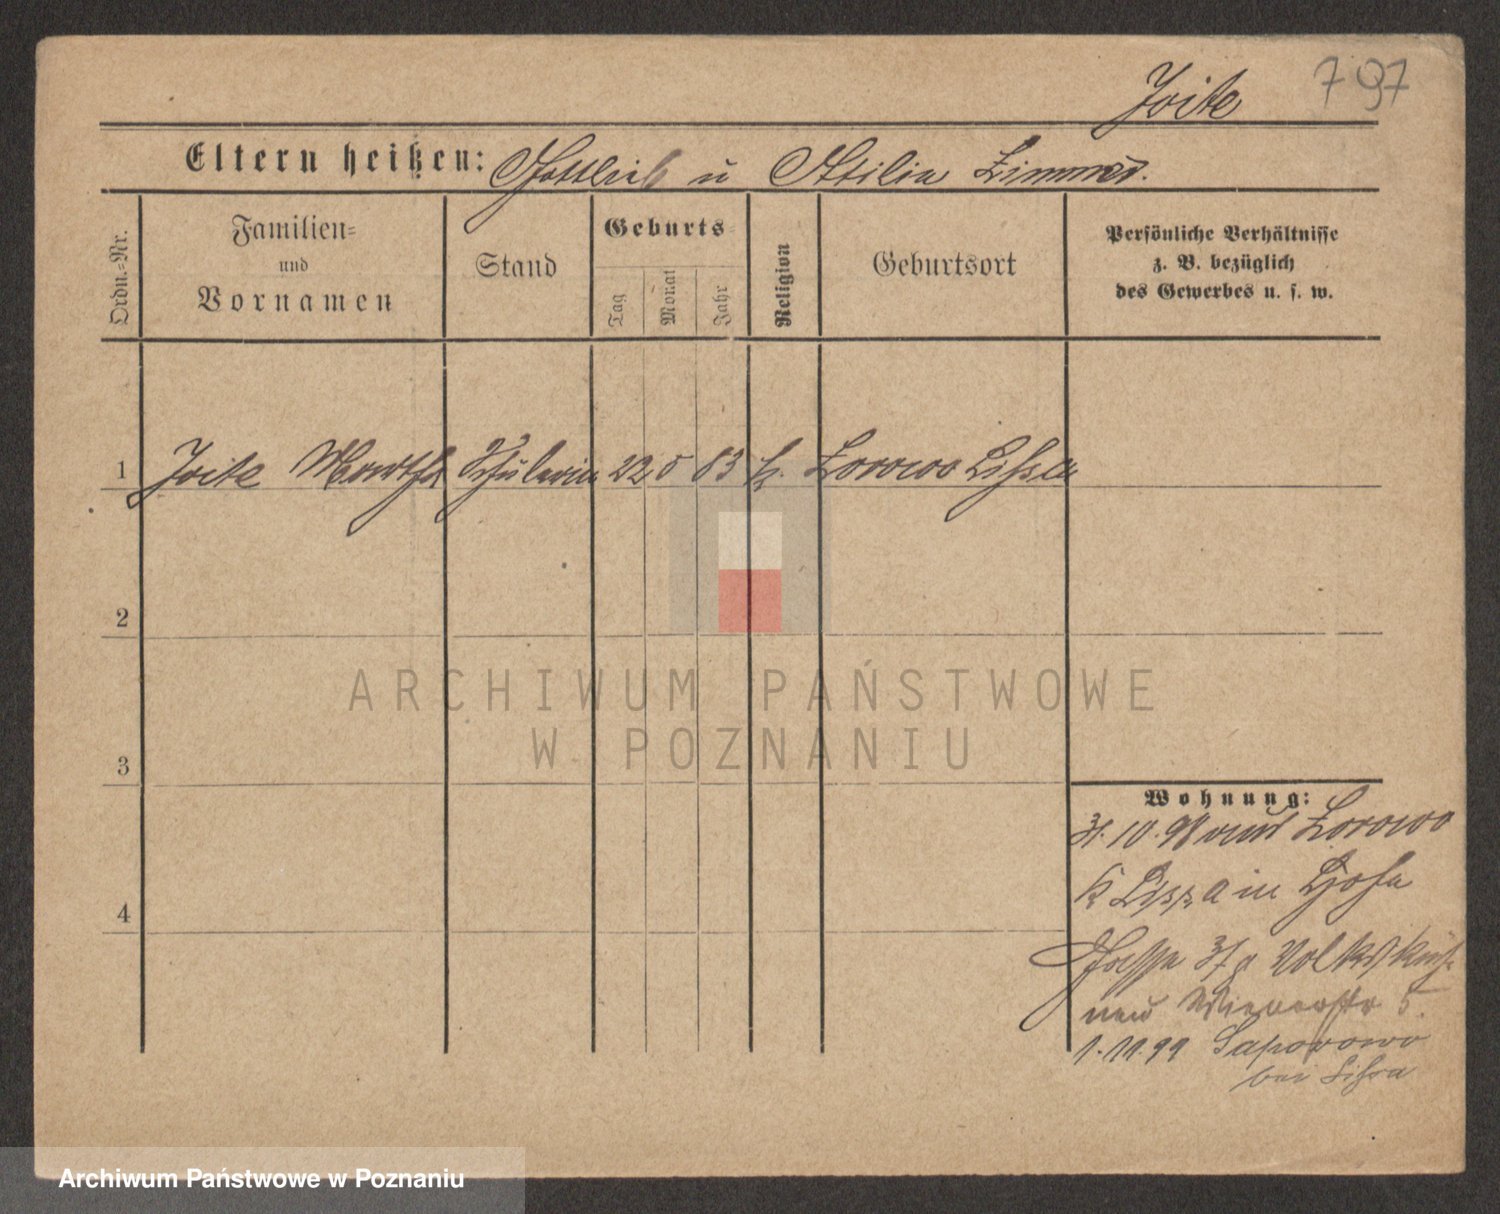 797
Joite
Eltern heißen: Gottlieb u Ottilia Zimmer.
Ordn.=Nr.
Familien=
und
Vornamen
Stand
Geburts=
Tag
Monat
Jahr
Religion
Geburtsort
Persönliche Verhältnisse
z. B. bezüglich
des Gewerbes u. s. w.
1 Joite Martha Schülerin 22 5 83 k. Zorowo Lissa
2
3
4
Wohnung:
31. 10. 98 aus Zorowo
K Lissa in
Volksk
neu Wienerstr 5.
1. 11. 99
bei Lissa
ARCHIWUM PAŃSTWOWE
W POZNANIU
Archiwum Państwowe w Poznaniu